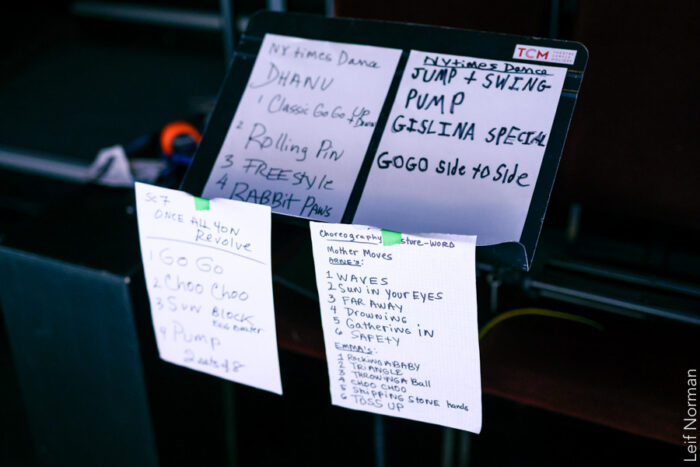 NYtimes Dance
DHANU
1 Classic GoGo Up
+ Down
2 Rolling Pin
3 FREEstyle
4 RABBIT PAWS
TCM
NYtimes Dance
JUMP + SWING
PUMP
GISLINA SPECIAL
GOGO side to side
Sc 7
ONCE ALL 4 ON
Revolve
1 Go Go
2 CHOO CHOO
3 SUN BLOCK
4 Pump
2 sets of 8
Choreography
ture-WORD
Mother Moves
ARNE'S:
1 WAVES
2 SUN IN YOUR EYES
3 FAR AWAY
4 Drowning
5 Gathering in
6 SAFETY
EMMA'S:
1 Rocking A BABY
2 TRIANGLE
3 THROWING A Ball
4 CHOO CHOO
5 Skipping STONE hands
6 TOSS UP
Leif Norman